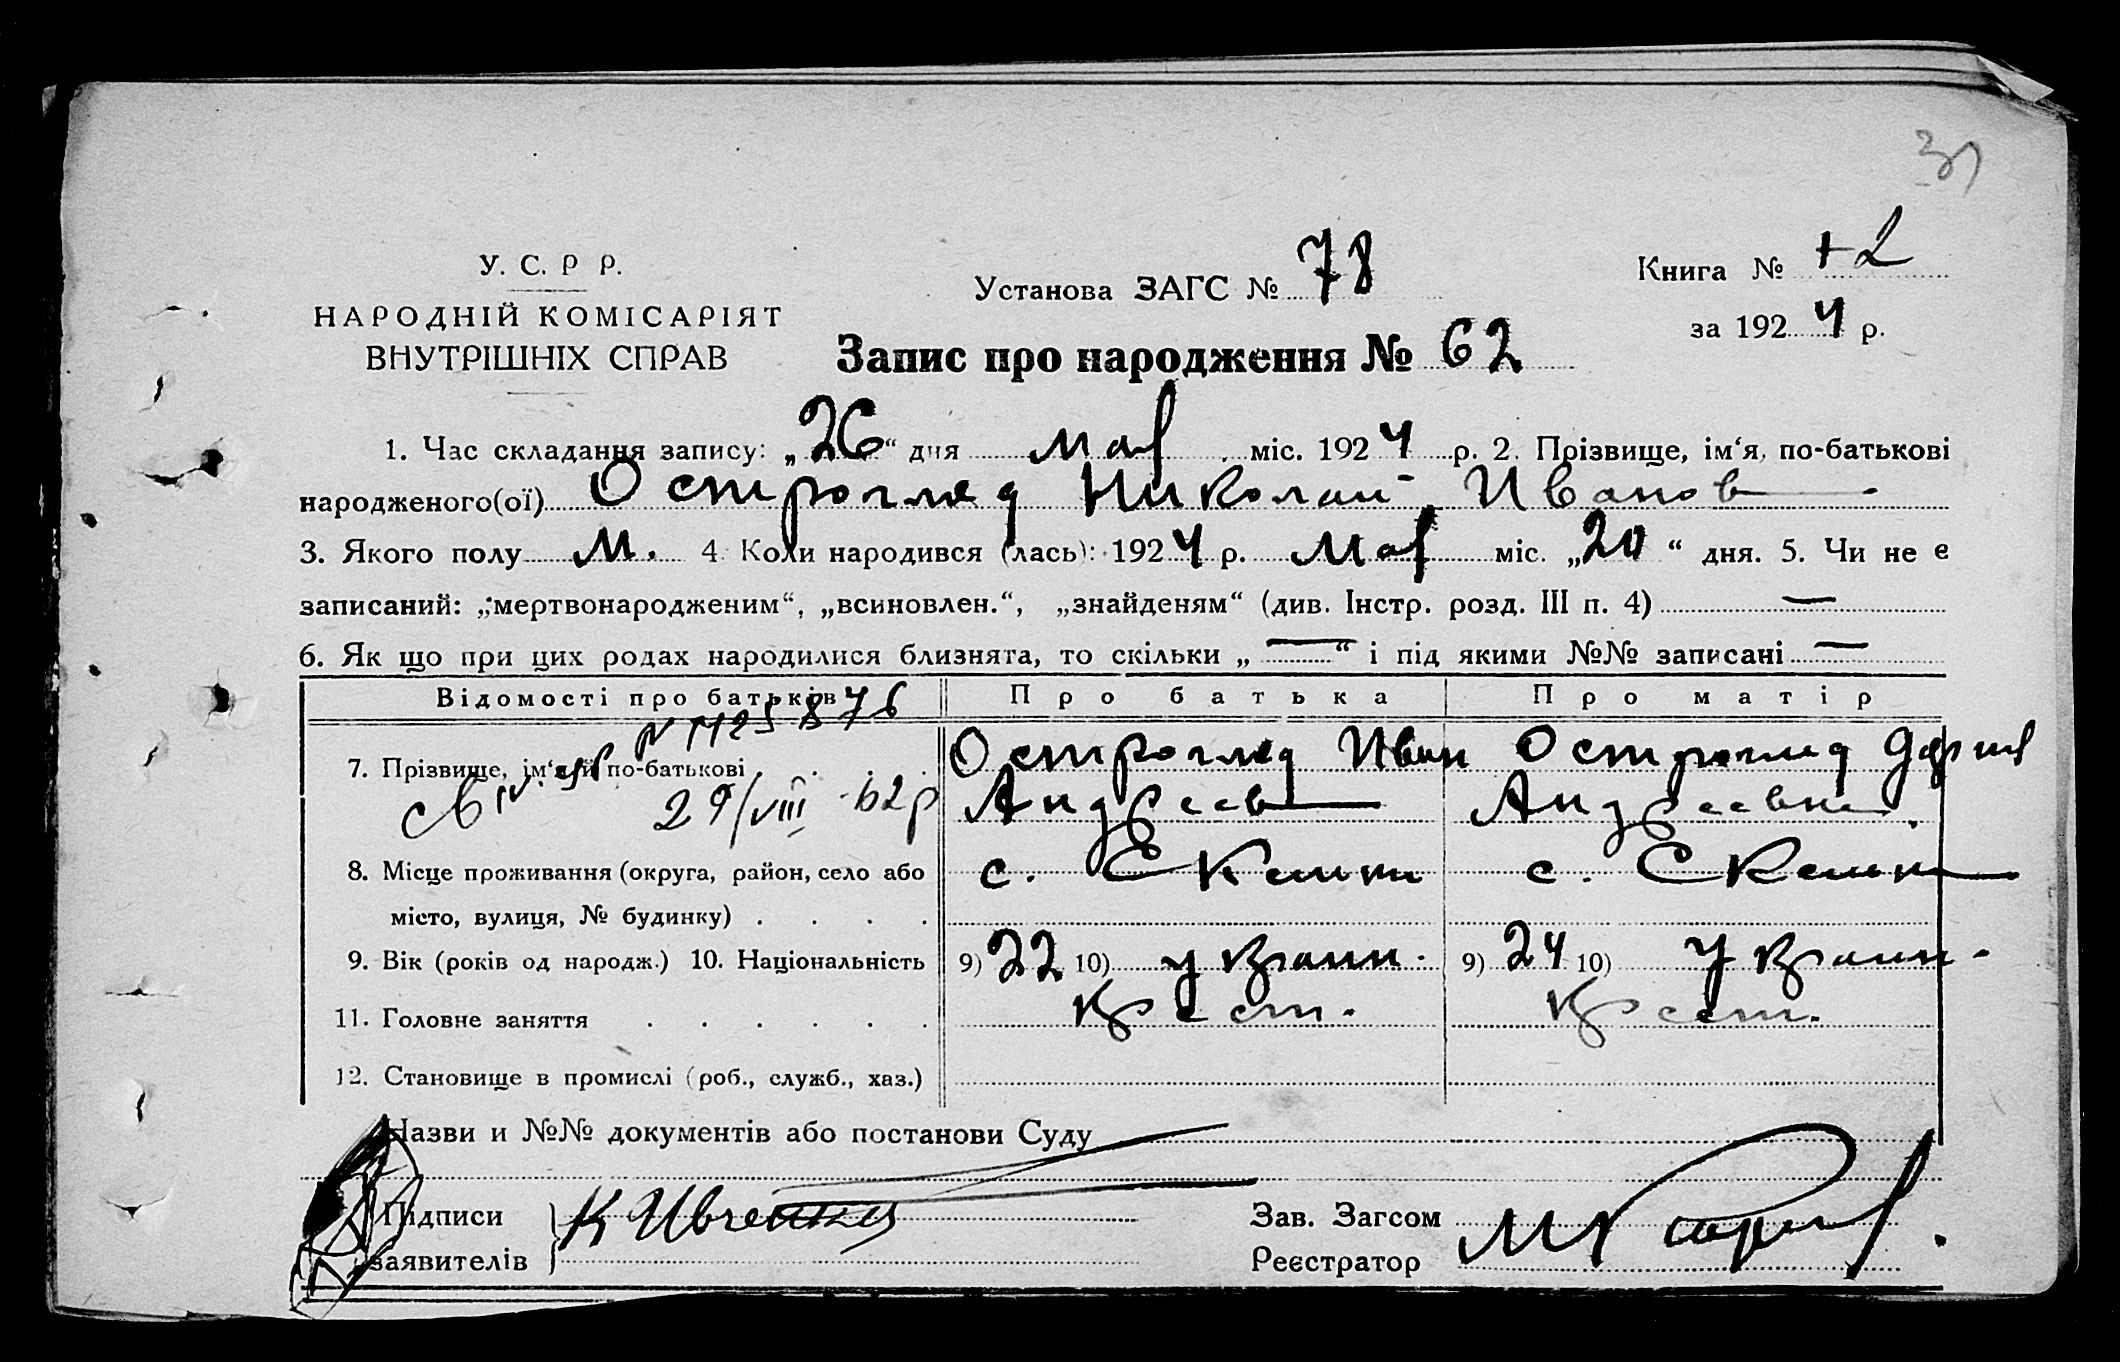 31
У. С. Р Р.
НАРОДНІЙ КОМІСАРІЯТ
ВНУТРІШНІХ СПРАВ
Установа ЗАГС № 78
Книга № 2
за 1924 р.
Запис про народження № 62
1. Час складання запису: „26“ дня мая міс. 1924 р. 2. Прізвище, ім‘я, по-батькові
народженого(ої) Острогляд Николай Иванов
3. Якого полу м. 4. Коли народився (лась): 1924 р. мая міс. „20“ дня. 5. Чи не є
записаний: „мертвонародженим“, „всиновлен.“, „знайденям“ (див. Інстр. розд. III п. 4) —
6. Як що при цих родах народилися близнята, то скільки „—“ і під якими №№ записані —
Відомості про батьків
Про батька
Про матір
7. Прізвище, ім‘я й по-батькові
Острогляд Иван
Андреев
Острогляд Дария
Андреевна.
29/VIII 62р
8. Місце проживання (округа, район, село або
місто, вулиця, № будинку)
с. Екельки
с. Екельки
9. Вік (років од народж.) 10. Національність
9) 22 10) украин.
9) 24 10) Украин.
11. Головне заняття
Крест.
Крест.
12. Становище в промислі (роб., служб., хаз.)
Назви и №№ документів або постанови Суду
Підписи
заявителів
К Ивченко
Зав. Загсом
Реєстратор